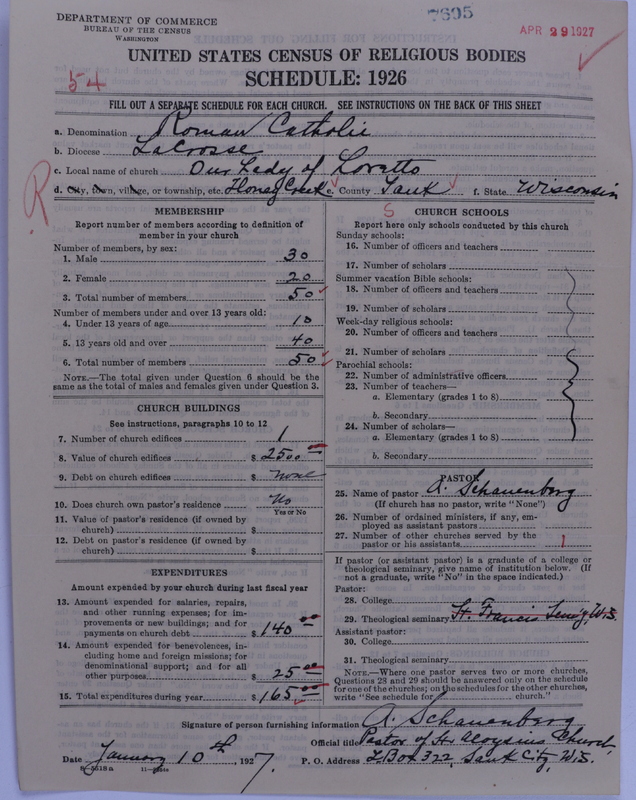 7695
APR 29 1927
DEPARTMENT OF COMMERCE
BUREAU OF THE CENSUS
WASHINGTON
UNITED STATES CENSUS OF RELIGIOUS BODIES
54
SCHEDULE: 1926
FILL OUT A SEPARATE SCHEDULE FOR EACH CHURCH. SEE INSTRUCTIONS ON THE BACK OF THIS SHEET
a. Denomination Roman Catholic
b. Diocese LaCrosse
c. Local name of church Our Lady of Loretto
R
d. City, town, village, or township, etc. Honey Creek e. County Sauk f. State Wisconsin
S
MEMBERSHIP
Report number of members according to definition of
member in your church
Number of members, by sex:
1. Male 30
2. Female 20
3. Total number of members 50
Number of members under and over 13 years old:
4. Under 13 years of age 10
5. 13 years old and over 40
6. Total number of members 50
NOTE.—The total given under Question 6 should be the
same as the total of males and females given under Question 3.
CHURCH BUILDINGS
See instructions, paragraphs 10 to 12
7. Number of church edifices 1
8. Value of church edifices $ 2500 00
9. Debt on church edifices $ none
10. Does church own pastor's residence No
Yes or No
11. Value of pastor's residence (if owned by
church) $
12. Debt on pastor's residence (if owned by
church) $
EXPENDITURES
Amount expended by your church during last fiscal year
13. Amount expended for salaries, repairs,
and other running expenses; for im-
provements or new buildings; and for
payments on church debt $ 140 00
14. Amount expended for benevolences, in-
cluding home and foreign missions; for
denominational support; and for all
other purposes $ 25 00
15. Total expenditures during year $ 165 00
CHURCH SCHOOLS
Report here only schools conducted by this church
Sunday schools:
16. Number of officers and teachers
17. Number of scholars
Summer vacation Bible schools:
18. Number of officers and teachers
19. Number of scholars
Week-day religious schools:
20. Number of officers and teachers
21. Number of scholars
Parochial schools:
22. Number of administrative officers
23. Number of teachers—
a. Elementary (grades 1 to 8)
b. Secondary
24. Number of scholars—
a. Elementary (grades 1 to 8)
b. Secondary
PASTOR
25. Name of pastor A. Schauenberg
(If church has no pastor, write "None")
26. Number of ordained ministers, if any, em-
ployed as assistant pastors
27. Number of other churches served by the
pastor or his assistants 1
If pastor (or assistant pastor) is a graduate of a college or
theological seminary, give name of institution below. (If
not a graduate, write "No" in the space indicated.)
Pastor:
28. College
29. Theological seminary St. Francis Semy, Wis.
Assistant pastor:
30. College
31. Theological seminary
NOTE.—Where one pastor serves two or more churches,
Questions 28 and 29 should be answered only on the schedule
for one of the churches; on the schedules for the other churches,
write "See schedule for church."
Signature of person furnishing information A. Schauenberg
Official title Pastor of St. Aloysius Church,
Date January 10th, 1927. P. O. Address L Box 322, Sauk City, Wis.